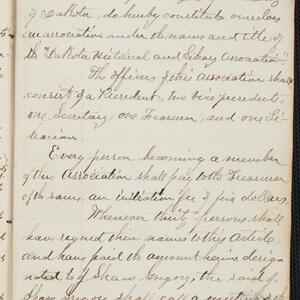 of Dakota, do hereby constitute ourselves
an association under the name and title of
the "Dakota Historical and Library Association".
The officers of this Association shall
consist of a President, two vice presidents,
one Secretary, one Treasurer, and one Li-
brarian.
Every person becoming a member
of this Association shall pay to the Treasurer
of the same, an initiation fee of five dollars.
Whenever thirty persons shall
have signed their names to this Article,
and have paid the amount herein desig-
nated to J. Shaw Gregory, the said J.
Shaw Gregory shall call a meeting of the